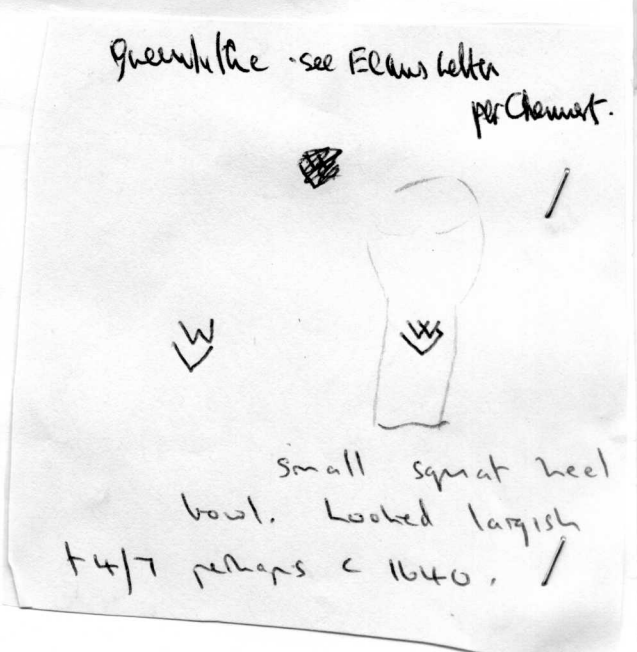 Queenhithe . see Evans letter
per Clement.
W W
small squat heel
bowl. Looked largish
+ 4/7 perhaps c 1640.